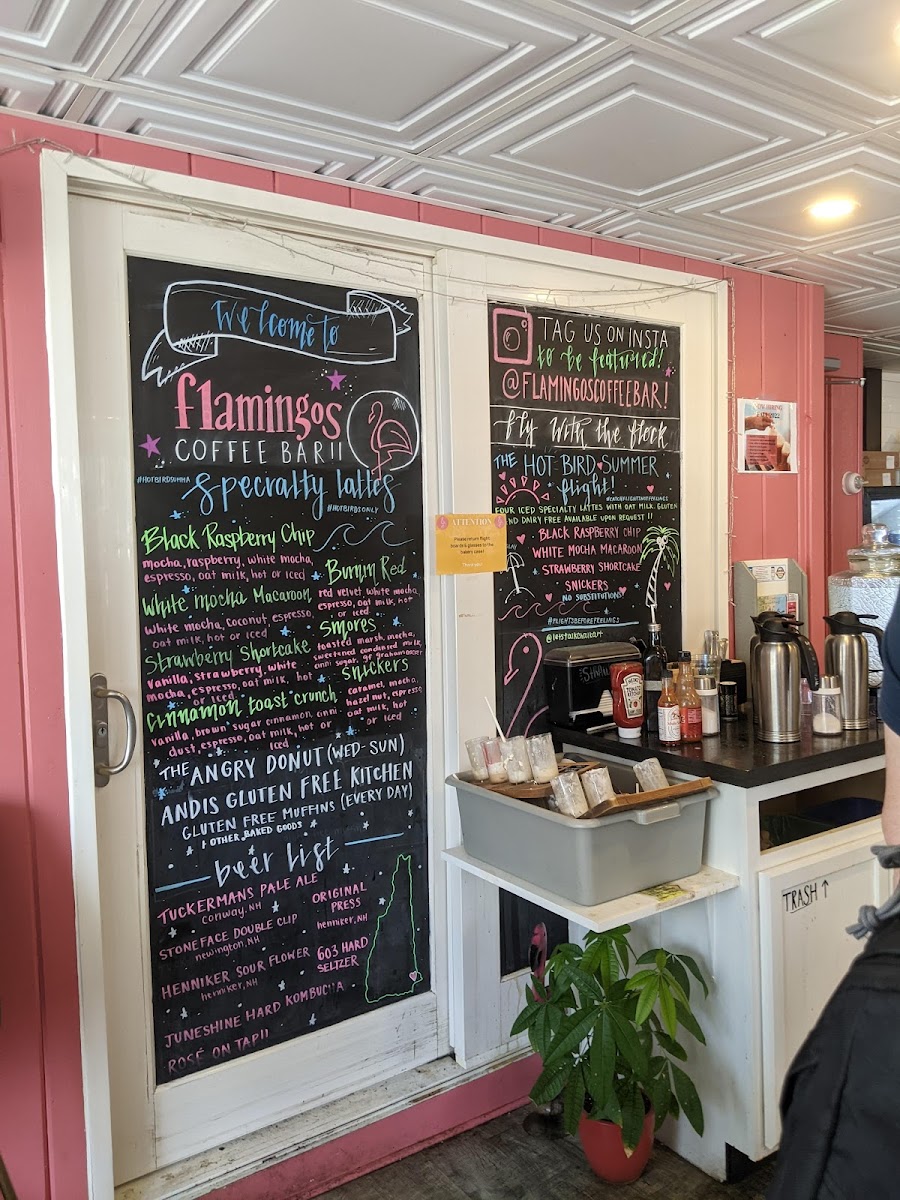 Welcome to
flamingos
COFFEE BAR!!
#HOTBIRDSUMMA
specialty lattes
#HOTBIRDSONLY
Black Raspberry Chip
mocha, raspberry, white mocha,
espresso, oat milk, hot or iced
White mocha Macaroon
white mocha, coconut, espresso,
oat milk, hot or iced
Strawberry Shortcake
vanilla, strawberry, white
mocha, espresso, oat milk, hot
or iced
cinnamon toast crunch
vanilla, brown sugar cinnamon, cinni
dust, espresso, oat milk, hot or
iced
Burnin Red
red velvet, white mocha,
espresso, oat milk, hot
or iced
smores
toasted marsh, mocha,
sweetened condensed milk,
cinni sugar, gf graham
snickers
caramel, mocha,
hazelnut, espresso,
oat milk, hot
or iced
THE ANGRY DONUT (WED-SUN)
ANDIS GLUTEN FREE KITCHEN
GLUTEN FREE MUFFINS (EVERY DAY)
+ OTHER BAKED GOODS
beer list
TUCKERMANS PALE ALE
conway, NH
STONEFACE DOUBLE CLIP
newington, NH
HENNIKER SOUR FLOWER
henniker, NH
JUNESHINE HARD KOMBUCHA
ROSÉ ON TAP!!
ORIGINAL
PRESS
henniker, NH
603 HARD
SELTZER
ATTENTION
Please return flight
boards & glasses to the
TAG US ON INSTA
to be featured!
@FLAMINGOSCOFFEEBAR!
fly with the flock
THE HOT BIRD SUMMER
flight!
#FLIGHTSBEFOREFEELINGS
FOUR ICED SPECIALTY LATTES WITH OAT MILK. GLUTEN
AND DAIRY FREE AVAILABLE UPON REQUEST !!
BLACK RASPBERRY CHIP
WHITE MOCHA MACAROON
STRAWBERRY SHORTCAKE
SNICKERS
NO SUBSTITUTIONS
#FLIGHTSBEFOREFEELINGS
HEINZ
TOMATO
KETCHUP
TRASH ↑